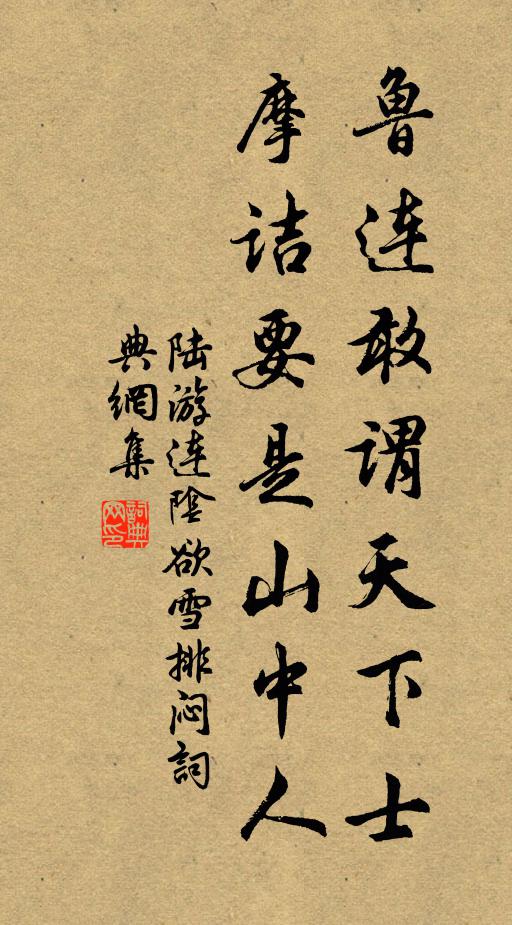 鲁连敢谓天下士
摩诘要是山中人
陆游连陰欲雪排闷詞
典網集
詞典
网印